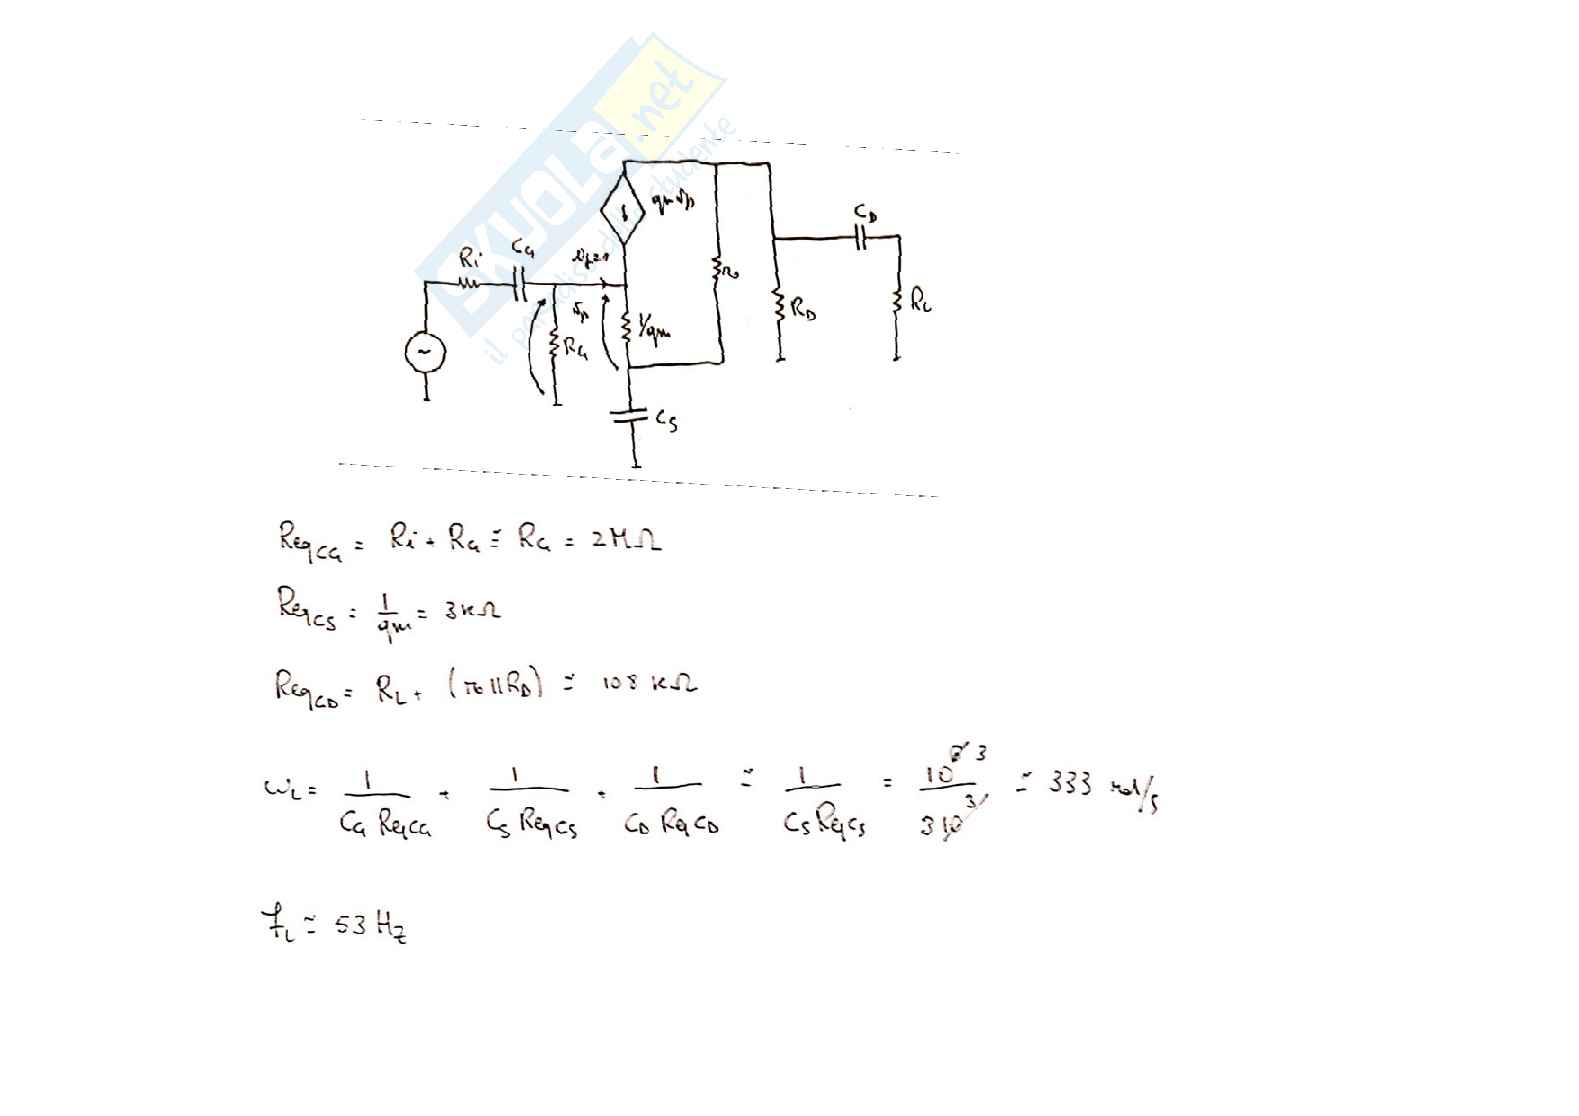 SKUOLA.net
il paradiso dello studente
Ri
CG
ig=0
gmvp
vp
RG
1/gm
CS
ro
RD
CD
RL
ReqCG = Ri + RG ≅ RG = 2MΩ
ReqCS = 1/gm = 3KΩ
ReqCD = RL + (ro || RD) ≅ 108 KΩ
ωL = 1/(CG ReqCG) + 1/(CS ReqCS) + 1/(CD ReqCD) ≅ 1/(CS ReqCS) = 10^6 3/(3 10^3) ≅ 333 rad/s
fL ≅ 53 Hz